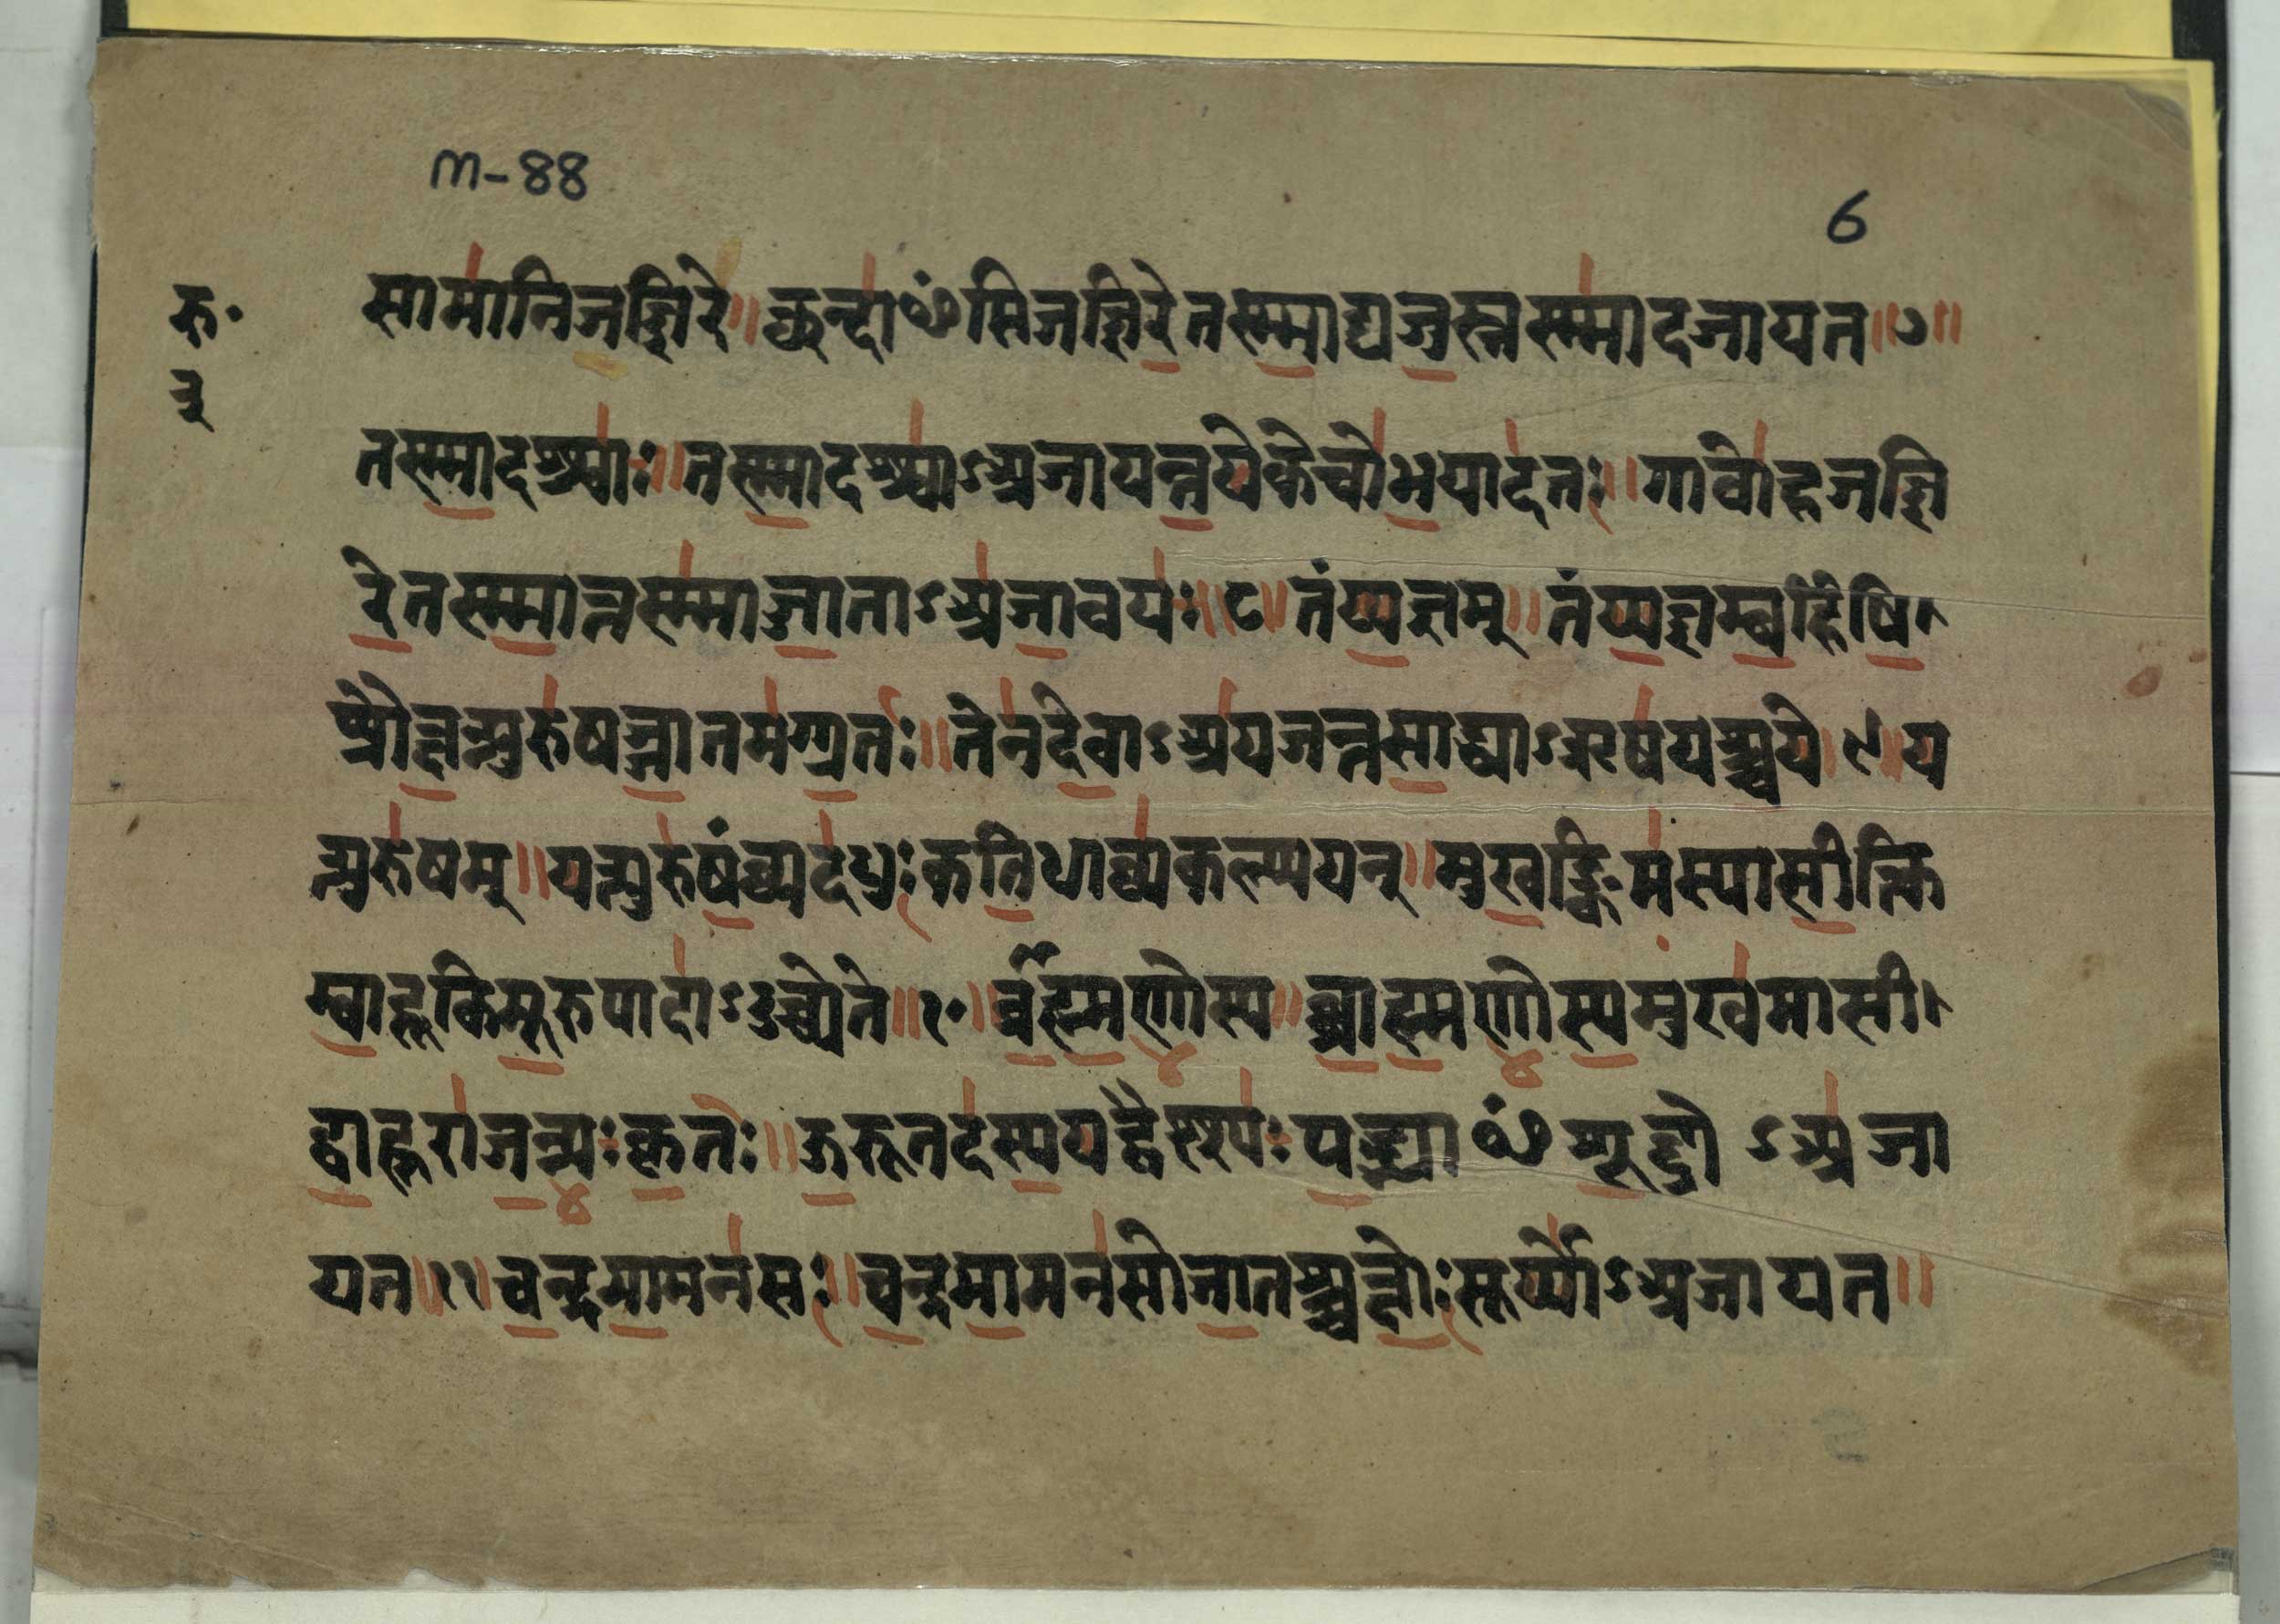 m-88
6
रु॰
सामा॑निजज्ञिरे॥ छन्दा॑ᳪसिजज्ञिरे॒तस्म्मा॒द्यजु॒स्तस्म्मा॑दजायत॥७॥
तस्म्मा॒दश्श्वा॑ः॥तस्म्मा॒दश्श्वा॑ऽअजायन्त॒येकेचो॑भ॒याद॑तः॥गावो॑हजज्ञि
रे॒तस्म्मा॒त्तस्म्मा॑ज्जा॒ताऽअ॑जा॒वय॑ः॥८॥तंय्य॒ज्ञम्॥तंय्य॒ज्ञम्ब॒र्हिषि॒
प्रौक्ष॒न्पुरु॑षञ्जा॒तम॑ग्ग्र॒तः॥तेन॑दे॒वाऽअ॑यजन्तसा॒द्ध्याऽऋष॑यश्श्चये॥९॥य
त्पुरु॑षम्॥यत्पुरु॑षं॒व्व्यद॑धुःकति॒धाव्व्य॑कल्प्पयन्॥मुख॒ङ्किम॑स्यासी॒त्किं
म्बा॒हूकिमू॒रुपादा॑ऽउच्च्येते॥१०॥ब्र॒ह्म॒णोस्य॥ब्ब्रा॒ह्म॒णोस्य॒मुख॑मासी
द्बा॒हूरा॑ज॒न्यः॑कृ॒तः॥ऊ॒रूतद॑स्य॒यद्वैश्य॑ःप॒द्भ्याᳪशू॒द्रोऽअ॑जा
यत॥११॥च॒न्द्रमा॒मन॑सः॥च॒न्द्रमा॒मन॑सोजा॒तश्श्चक्षो॒ःसूर्य्यो॑ऽअजायत॥